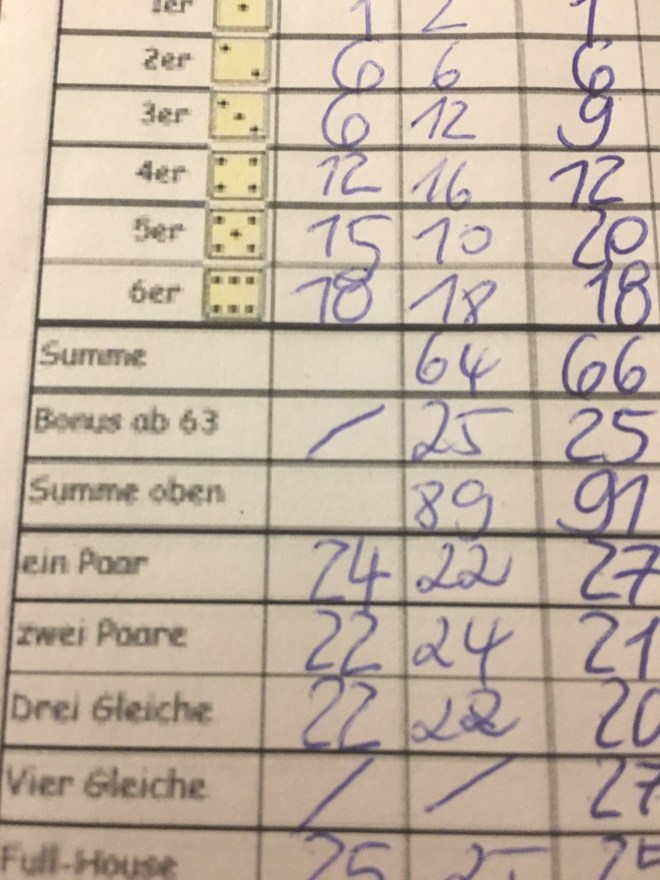 1er 1 2 1
2er 6 6 6
3er 6 12 9
4er 12 16 12
5er 15 10 20
6er 18 18 18
Summe 64 66
Bonus ab 63 / 25 25
Summe oben 89 91
ein Paar 24 22 27
zwei Paare 22 24 21
Drei Gleiche 22 22 20
Vier Gleiche / / 27
Full-House 25 25 25